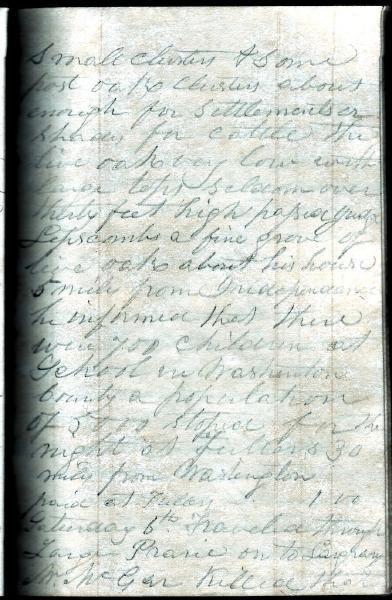 Small clusters & Some
post oaks clusters about
enough for Settlements or
Shades for cattle the
live oaks very low with
large tops Seldom over
thirty feet high passed Judge
Lipscombs a fine grove of
live oaks about his house
5 miles from Independence
he informed that there
were 700 children at
School in Washington
County a population
of 5000 stoped for the
night at Fullers 30
miles from Washington
paid at 1.00
Saturday 6th Traveled through
Large Prarie on to Lagrange
Mr McGar Killed